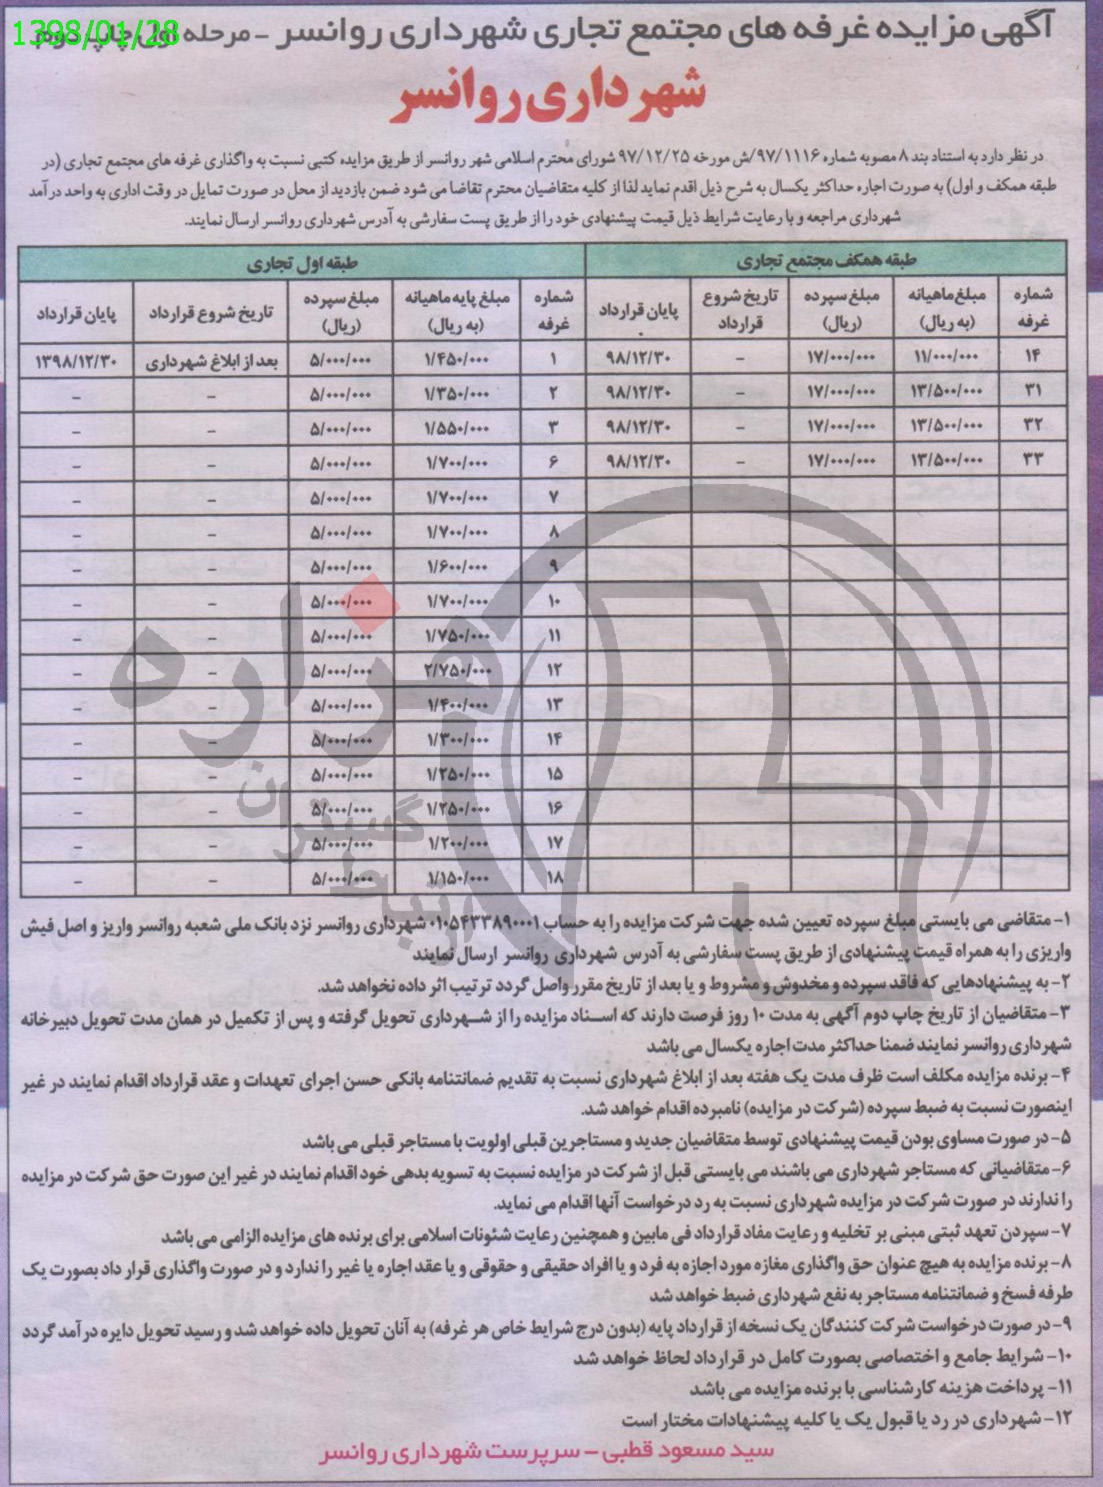 1398/01/28
آگهی مزایده غرفه های مجتمع تجاری شهرداری روانسر - مرحله اول چاپ دوم
شهرداری روانسر
در نظر دارد به استناد بند ۸ مصوبه شماره ۹۷/۱۱۱۶/ش مورخه ۹۷/۱۲/۲۵ شورای محترم اسلامی شهر روانسر از طریق مزایده کتبی نسبت به واگذاری غرفه های مجتمع تجاری (در
طبقه همکف و اول) به صورت اجاره حداکثر یکسال به شرح ذیل اقدم نماید لذا از کلیه متقاضیان محترم تقاضا می شود ضمن بازدید از محل در صورت تمایل در وقت اداری به واحد درآمد
شهرداری مراجعه و با رعایت شرایط ذیل قیمت پیشنهادی خود را از طریق پست سفارشی به آدرس شهرداری روانسر ارسال نمایند.
طبقه همکف مجتمع تجاری طبقه اول تجاری
شماره غرفه مبلغ ماهیانه (به ریال) مبلغ سپرده (ریال) تاریخ شروع قرارداد پایان قرارداد شماره غرفه مبلغ پایه ماهیانه (به ریال) مبلغ سپرده (ریال) تاریخ شروع قرارداد پایان قرارداد
۱۴ ۱۱/۰۰۰/۰۰۰ ۱۷/۰۰۰/۰۰۰ - ۹۸/۱۲/۳۰ ۱ ۱/۴۵۰/۰۰۰ ۵/۰۰۰/۰۰۰ بعد از ابلاغ شهرداری ۱۳۹۸/۱۲/۳۰
۳۱ ۱۳/۵۰۰/۰۰۰ ۱۷/۰۰۰/۰۰۰ - ۹۸/۱۲/۳۰ ۲ ۱/۳۵۰/۰۰۰ ۵/۰۰۰/۰۰۰ - -
۳۲ ۱۳/۵۰۰/۰۰۰ ۱۷/۰۰۰/۰۰۰ - ۹۸/۱۲/۳۰ ۳ ۱/۵۵۰/۰۰۰ ۵/۰۰۰/۰۰۰ - -
۳۳ ۱۳/۵۰۰/۰۰۰ ۱۷/۰۰۰/۰۰۰ - ۹۸/۱۲/۳۰ ۶ ۱/۷۰۰/۰۰۰ ۵/۰۰۰/۰۰۰ - -
۷ ۱/۷۰۰/۰۰۰ ۵/۰۰۰/۰۰۰ - -
۸ ۱/۷۰۰/۰۰۰ ۵/۰۰۰/۰۰۰ - -
۹ ۱/۶۰۰/۰۰۰ ۵/۰۰۰/۰۰۰ - -
۱۰ ۱/۷۰۰/۰۰۰ ۵/۰۰۰/۰۰۰ - -
۱۱ ۱/۷۵۰/۰۰۰ ۵/۰۰۰/۰۰۰ - -
۱۲ ۲/۷۵۰/۰۰۰ ۵/۰۰۰/۰۰۰ - -
۱۳ ۱/۴۰۰/۰۰۰ ۵/۰۰۰/۰۰۰ - -
۱۴ ۱/۳۰۰/۰۰۰ ۵/۰۰۰/۰۰۰ - -
۱۵ ۱/۲۵۰/۰۰۰ ۵/۰۰۰/۰۰۰ - -
۱۶ ۱/۲۵۰/۰۰۰ ۵/۰۰۰/۰۰۰ - -
۱۷ ۱/۲۰۰/۰۰۰ ۵/۰۰۰/۰۰۰ - -
۱۸ ۱/۱۵۰/۰۰۰ ۵/۰۰۰/۰۰۰ - -
۱- متقاضی می بایستی مبلغ سپرده تعیین شده جهت شرکت مزایده را به حساب ۰۱۰۵۴۳۳۸۹۰۰۰۱ شهرداری روانسر نزد بانک ملی شعبه روانسر واریز و اصل فیش
واریزی را به همراه قیمت پیشنهادی از طریق پست سفارشی به آدرس شهرداری روانسر ارسال نمایند
۲- به پیشنهادهایی که فاقد سپرده و مخدوش و مشروط و یا بعد از تاریخ مقرر واصل گردد ترتیب اثر داده نخواهد شد.
۳- متقاضیان از تاریخ چاپ دوم آگهی به مدت ۱۰ روز فرصت دارند که اسناد مزایده را از شهرداری تحویل گرفته و پس از تکمیل در همان مدت تحویل دبیرخانه
شهرداری روانسر نمایند ضمنا حداکثر مدت اجاره یکسال می باشد
۴- برنده مزایده مکلف است ظرف مدت یک هفته بعد از ابلاغ شهرداری نسبت به تقدیم ضمانتنامه بانکی حسن اجرای تعهدات و عقد قرارداد اقدام نمایند در غیر
اینصورت نسبت به ضبط سپرده (شرکت در مزایده) نامبرده اقدام خواهد شد.
۵- در صورت مساوی بودن قیمت پیشنهادی توسط متقاضیان جدید و مستاجرین قبلی اولویت با مستاجر قبلی می باشد
۶- متقاضیانی که مستاجر شهرداری می باشند می بایستی قبل از شرکت در مزایده نسبت به تسویه بدهی خود اقدام نمایند در غیر این صورت حق شرکت در مزایده
را ندارند در صورت شرکت در مزایده شهرداری نسبت به رد درخواست آنها اقدام می نماید.
۷- سپردن تعهد ثبتی مبنی بر تخلیه و رعایت مفاد قرارداد فی مابین و همچنین رعایت شئونات اسلامی برای برنده های مزایده الزامی می باشد
۸- برنده مزایده به هیچ عنوان حق واگذاری مغازه مورد اجازه به فرد و یا افراد حقیقی و حقوقی و یا عقد اجاره یا غیر را ندارد و در صورت واگذاری قرار داد بصورت یک
طرفه فسخ و ضمانتنامه مستاجر به نفع شهرداری ضبط خواهد شد
۹- در صورت درخواست شرکت کنندگان یک نسخه از قرارداد پایه (بدون درج شرایط خاص هر غرفه) به آنان تحویل داده خواهد شد و رسید تحویل دایره درآمد گردد
۱۰- شرایط جامع و اختصاصی بصورت کامل در قرارداد لحاظ خواهد شد
۱۱- پرداخت هزینه کارشناسی با برنده مزایده می باشد
۱۲- شهرداری در رد یا قبول یک یا کلیه پیشنهادات مختار است
سید مسعود قطبی - سرپرست شهرداری روانسر
هزاره